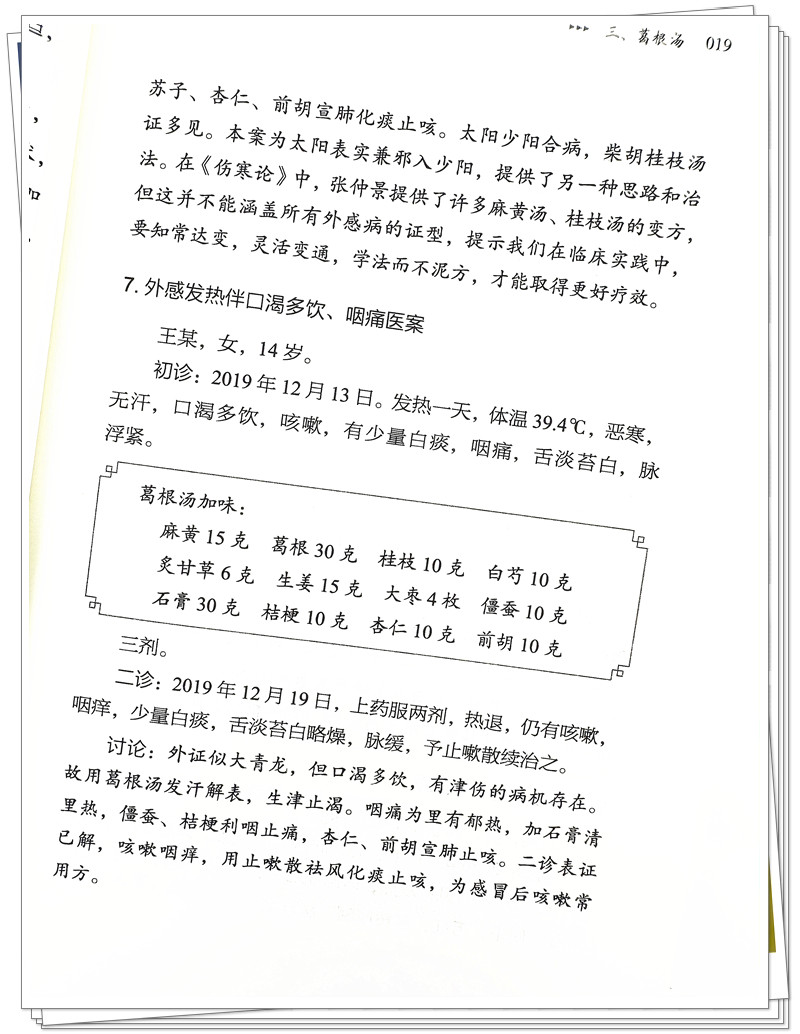 三、葛根汤 019
苏子、杏仁、前胡宣肺化痰止咳。太阳少阳合病，柴胡桂枝汤
证多见。本案为太阳表实兼邪入少阳，提供了另一种思路和治
法。在《伤寒论》中，张仲景提供了许多麻黄汤、桂枝汤的变方，
但这并不能涵盖所有外感病的证型，提示我们在临床实践中，
要知常达变，灵活变通，学法而不泥方，才能取得更好疗效。
7. 外感发热伴口渴多饮、咽痛医案
王某，女，14 岁。
初诊：2019 年 12 月 13 日。发热一天，体温 39.4℃，恶寒，
无汗，口渴多饮，咳嗽，有少量白痰，咽痛，舌淡苔白，脉
浮紧。
葛根汤加味：
麻黄 15 克 葛根 30 克 桂枝 10 克 白芍 10 克
炙甘草 6 克 生姜 15 克 大枣 4 枚 僵蚕 10 克
石膏 30 克 桔梗 10 克 杏仁 10 克 前胡 10 克
三剂。
二诊：2019 年 12 月 19 日，上药服两剂，热退，仍有咳嗽，
咽痒，少量白痰，舌淡苔白略燥，脉缓，予止嗽散续治之。
讨论：外证似大青龙，但口渴多饮，有津伤的病机存在。
故用葛根汤发汗解表，生津止渴。咽痛为里有郁热，加石膏清
里热，僵蚕、桔梗利咽止痛，杏仁、前胡宣肺止咳。二诊表证
已解，咳嗽咽痒，用止嗽散祛风化痰止咳，为感冒后咳嗽常
用方。